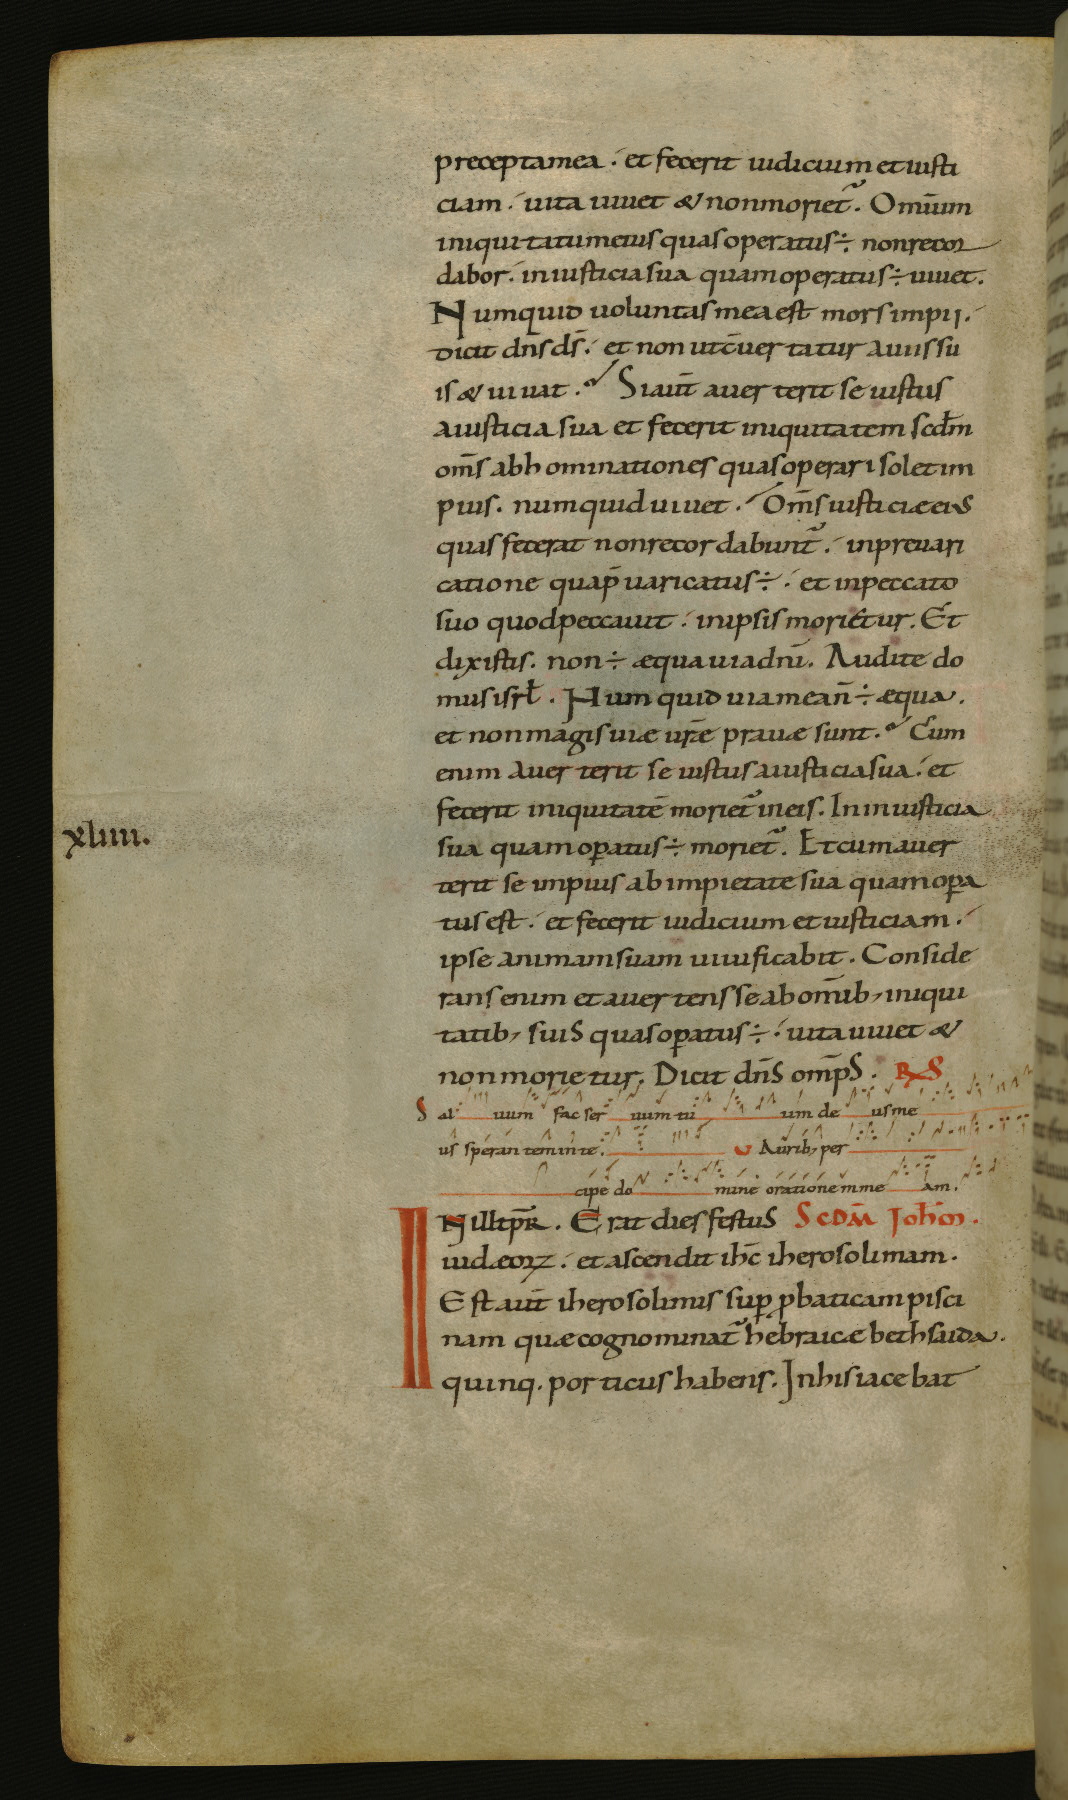 preceptamea. et fecerit iudicium et iusti
ciam. uita uiuet & non moriet᷑. Omiūm
iniquitatum eius quas operatus ÷. non recor
dabor. in iusticia sua quam operatus ÷ uiuet.
Numquid uoluntas mea est mors impii.
dicit dn̄s ds̄. et non ut c̄uertatur a uiis su
is & uiuat. Si aut̄ auerterit se iustus
a iusticia sua et fecerit iniquitatem scdm̄
om̄s abhominationes quas operari solet im
pius. numquid uiuet. Om̄s iusticiæ eius
quas fecerat non recordabunt᷑. in preuari
catione qua p̄uaricatus ÷. et in peccato
suo quod peccauit. in ipsis morietur. Et
dixistis. non ÷ æqua uia dn̄i. Audite do
mus isrł. Numquid uia mea n̄ ÷ æqua.
et non magis uiæ urē prauæ sunt. Cum
enim auerterit se iustus a iusticia sua. et
fecerit iniquitatē moriet᷑ in eis. In iniusticia
xliiii.
sua quam opatus ÷ moriet᷑. Et cum auer
terit se impius ab impietate sua quam opa
tus est. et fecerit iudicium et iusticiam.
ipse animam suam uiuificabit. Conside
rans enim et auertens se ab omīb, iniqui
tatib, suis quas opatus ÷. uita uiuet &
non morietur. Dicit dn̄s omp̄s. RS
Saluum fac seruum tuum deus me
us sperantem in te. V Aurib, per
cipe domine orationem meam.
In ill tp̄r. Erat dies festus Scdm Johem.
iudæorꝝ. et ascendit ihc̄ iherosolimam.
Est aut̄ iherosolimis sup pbatica pisci
nam quæ cognominat᷑ hebraicæ bethsaida.
quinq. porticus habens. In his iacebat